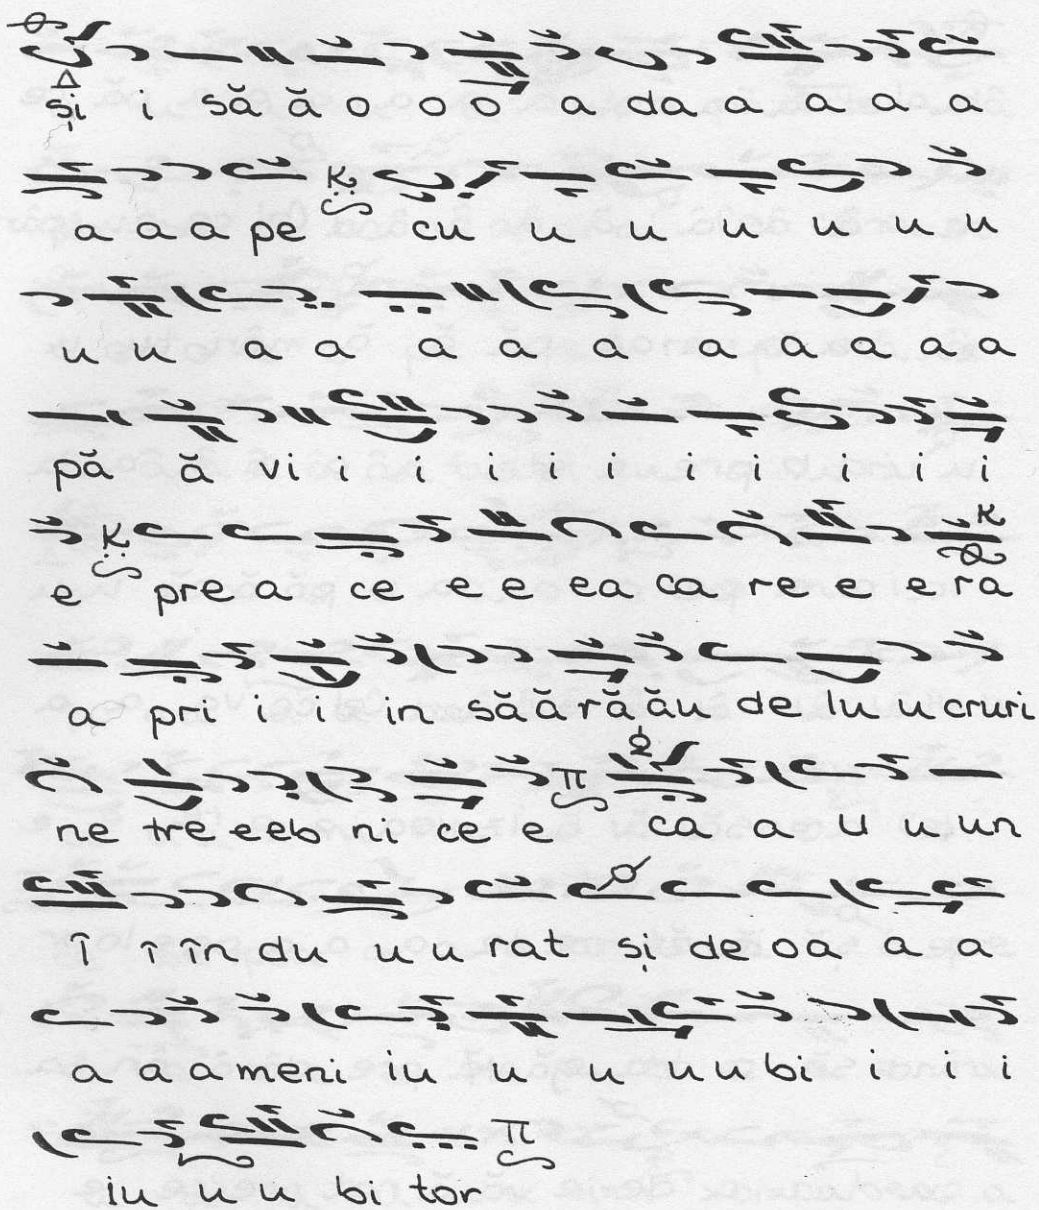 și i să ă o o o a da a a a a
a a a pe cu u u u u u u
u u a a a a a a a a a a
pă ă vi i i i i i i i i i
e pre a ce e e ea ca re e e ra
a pri i i in să ă ră ău de lu u cruri
ne tre eeb ni ce e ca a u u un
î î în du u u rat și de oa a a
a a a meni iu u u u u bi i i i
iu u u bi tor